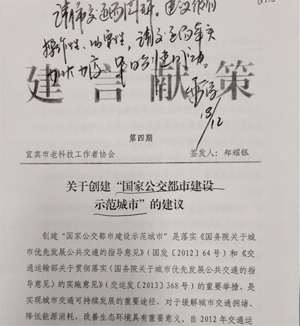 请市交通局研
操作性、
建言献策
第四期
宜宾市老科技工作者协会 签发人：郑耀银
关于创建“国家公交都市建设
示范城市”的建议
创建“国家公交都市建设示范城市”是落实《国务院关于城
市优先发展公共交通的指导意见》（国发〔2012〕64号）和《交
通运输部关于贯彻落实《国务院关于城市优先发展公共交通的指
导意见》的实施意见》（交运发〔2013〕368号）的重要举措，是
实现城市交通可持续发展的重要途径，对于缓解城市交通拥堵、
降低能源消耗、改善生态环境具有重要意义。自2012年交通运